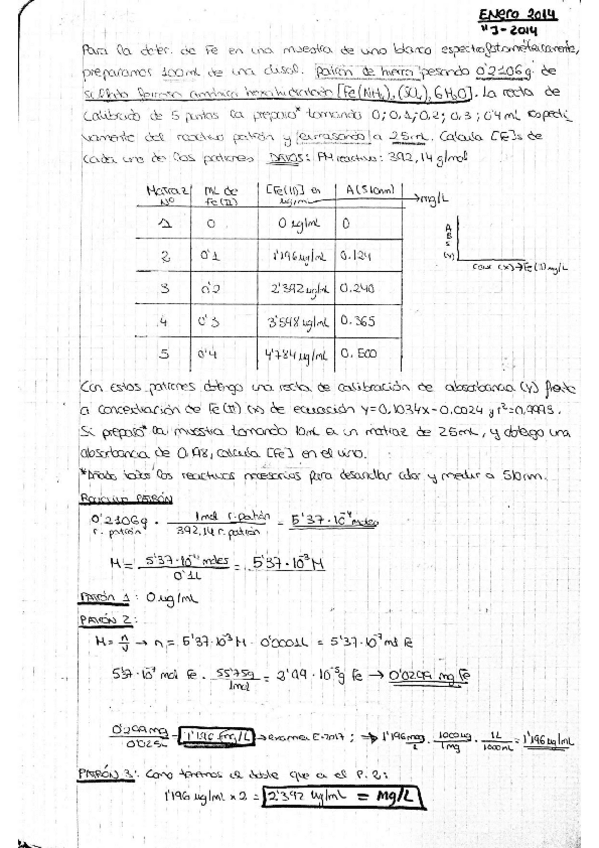 ENERO 2014
" J-2014
Para la deter. de Fe en una muestra de vino blanco espectrofotométricamente,
preparamos 100mL de una disol. patrón de hierro pesando 0'2106g de
sulfato ferroso amónico hexahidratado [Fe(NH4)2(SO4)2 6H2O]. La recta de
calibrado de 5 puntos la preparo* tomando 0; 0,1; 0,2; 0,3; 0,4 mL respecti
vamente del reactivo patrón y enrasando a 25mL. Calcula [Fe]s de
cada uno de los patrones DATOS: PM reactivo: 392,14 g/mol
Matraz Nº mL de Fe(II) [Fe(II)] en ug/mL A(510nm) → mg/L
1 0 0 ug/mL 0
2 0'1 1'196 ug/mL 0.124
3 0'2 2'392 ug/mL 0.240
4 0'3 3'548 ug/mL 0.365
5 0'4 4'784 ug/mL 0.500
ABS (y)
conc (x) → Fe(II) mg/L
Con estos patrones obtengo una recta de calibración de absorbancia (y) frente
a concentración de Fe(II) (x) de ecuación y=0,1034x-0,0024 y r²=0,9993.
Si preparo* la muestra tomando 10mL en un matraz de 25mL, y obtengo una
absorbancia de 0,198, calcula [Fe] en el vino.
*Añado todos los reactivos necesarios para desarrollar color y medir a 510nm.
REACTIVO PATRÓN
0'2106g r. patrón · 1mol r. patrón / 392,14 r. patrón = 5'37·10⁻⁴ moles
M = 5'37·10⁻⁴ moles / 0'1L = 5'37·10⁻³ M
PATRÓN 1: 0 ug/mL
PATRÓN 2:
M = n/v → n = 5'37·10⁻³ M · 0'0001L = 5'37·10⁻⁷ mol Fe
5'37·10⁻⁷ mol Fe · 55'75g / 1mol = 2'99·10⁻⁵ g Fe → 0'0299 mg Fe
0'299mg / 0'025L = 1'196 mg/L → examen E-2017; ⇒ 1'196 mg/L · 1000ug / 1mg · 1L / 1000mL = 1'196 ug/mL
PATRÓN 3: Como tenemos el doble que en el P.2:
1'196 ug/mL x 2 = 2'392 ug/mL = mg/L